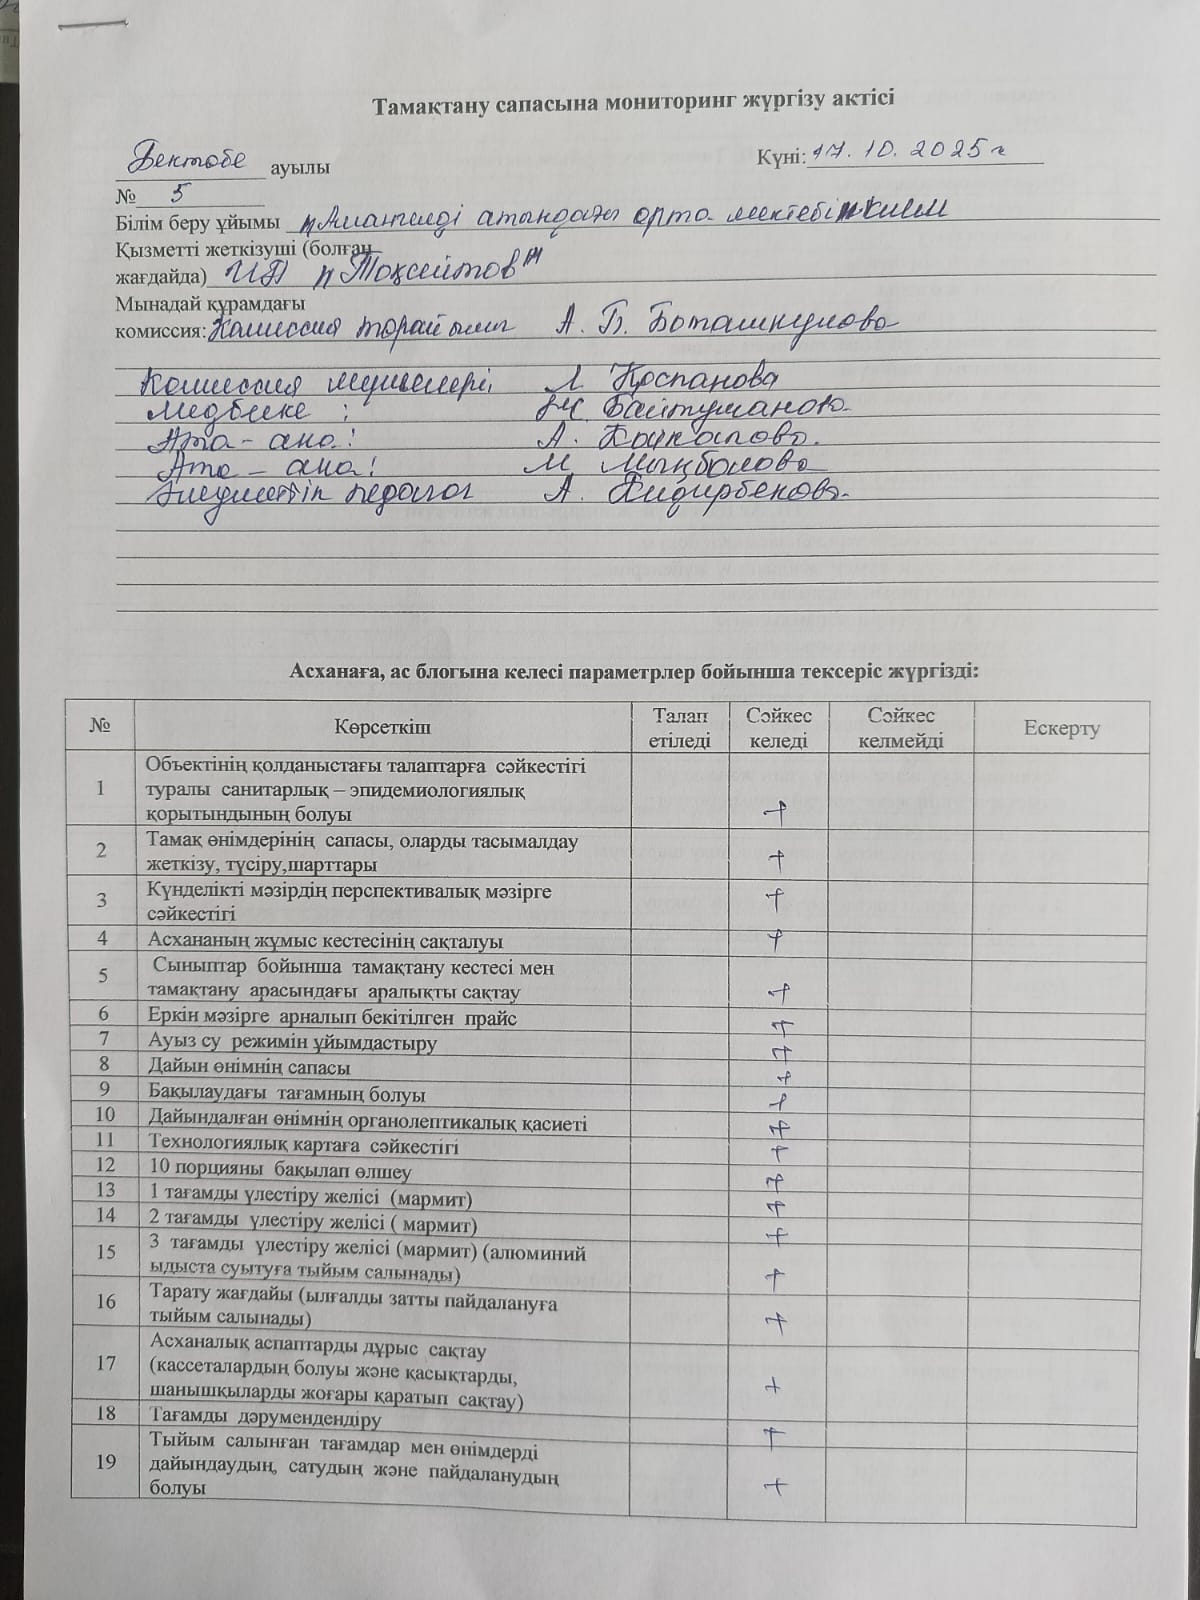 Тамақтану сапасына мониторинг жүргізу актісі
Бектөбе ауылы Күні: 17. 10. 2025 г
№ 5
Білім беру ұйымы "Амангелді атындағы орта мектебі" КММ
Қызметті жеткізуші (болған
жағдайда) ИП "Тоқсейтов"
Мынадай құрамдағы
комиссия: Комиссия төрайымы А. Б. Боташкулова
Комиссия мүшелері Л Қоспанова
Медбике : Байтушанова
Ата - ана : А.
Ата - ана : М Мыңбаева
Әлеуметтік педагог А. Кидирбекова
Асханаға, ас блогына келесі параметрлер бойынша тексеріс жүргізді:
№ Көрсеткіш Талап етіледі Сәйкес келеді Сәйкес келмейді Ескерту
1 Объектінің қолданыстағы талаптарға сәйкестігі
туралы санитарлық – эпидемиологиялық
қорытындының болуы +
2 Тамақ өнімдерінің сапасы, оларды тасымалдау
жеткізу, түсіру,шарттары +
3 Күнделікті мәзірдің перспективалық мәзірге
сәйкестігі +
4 Асхананың жұмыс кестесінің сақталуы +
5 Сыныптар бойынша тамақтану кестесі мен
тамақтану арасындағы аралықты сақтау +
6 Еркін мәзірге арналып бекітілген прайс +
7 Ауыз су режимін ұйымдастыру +
8 Дайын өнімнің сапасы +
9 Бақылаудағы тағамның болуы +
10 Дайындалған өнімнің органолептикалық қасиеті +
11 Технологиялық картаға сәйкестігі +
12 10 порцияны бақылап өлшеу +
13 1 тағамды үлестіру желісі (мармит) +
14 2 тағамды үлестіру желісі ( мармит) +
15 3 тағамды үлестіру желісі (мармит) (алюминий
ыдыста суытуға тыйым салынады) +
16 Тарату жағдайы (ылғалды затты пайдалануға
тыйым салынады) +
17 Асханалық аспаптарды дұрыс сақтау
(кассеталардың болуы және қасықтарды,
шанышқыларды жоғары қаратып сақтау) +
18 Тағамды дәрумендендіру +
19 Тыйым салынған тағамдар мен өнімдерді
дайындаудың, сатудың және пайдаланудың
болуы +